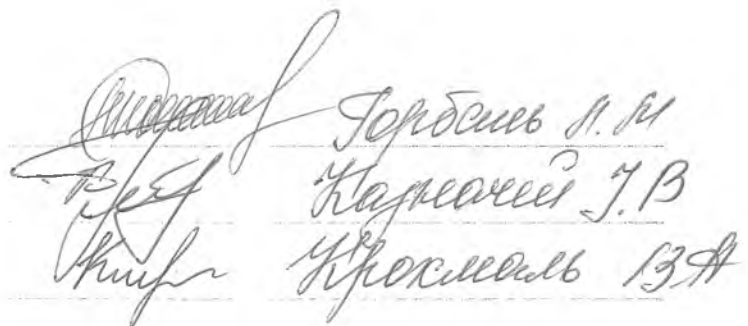 Горбань Л. М
Казначей І. В
Крохмаль В А